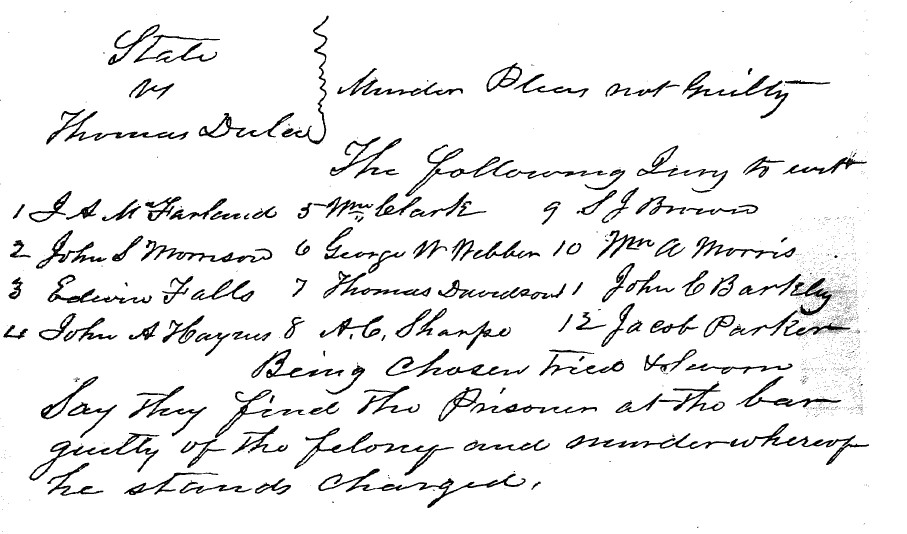 State
vs
Thomas Dulea
Murder Pleas not Guilty
The following Jury to wit
1 J A McFarland 5 Wm Clark 9 S J Brown
2 John S Morrison 6 George W Webber 10 Wm A Morris
3 Edwin Falls 7 Thomas Davidson 11 John C Barkley
4 John A Haynes 8 A. C. Sharpe 12 Jacob Parker
Being Chosen Tried & Sworn
Say they find the Prisoner at the bar
guilty of the felony and murder whereof
he stands Charged.